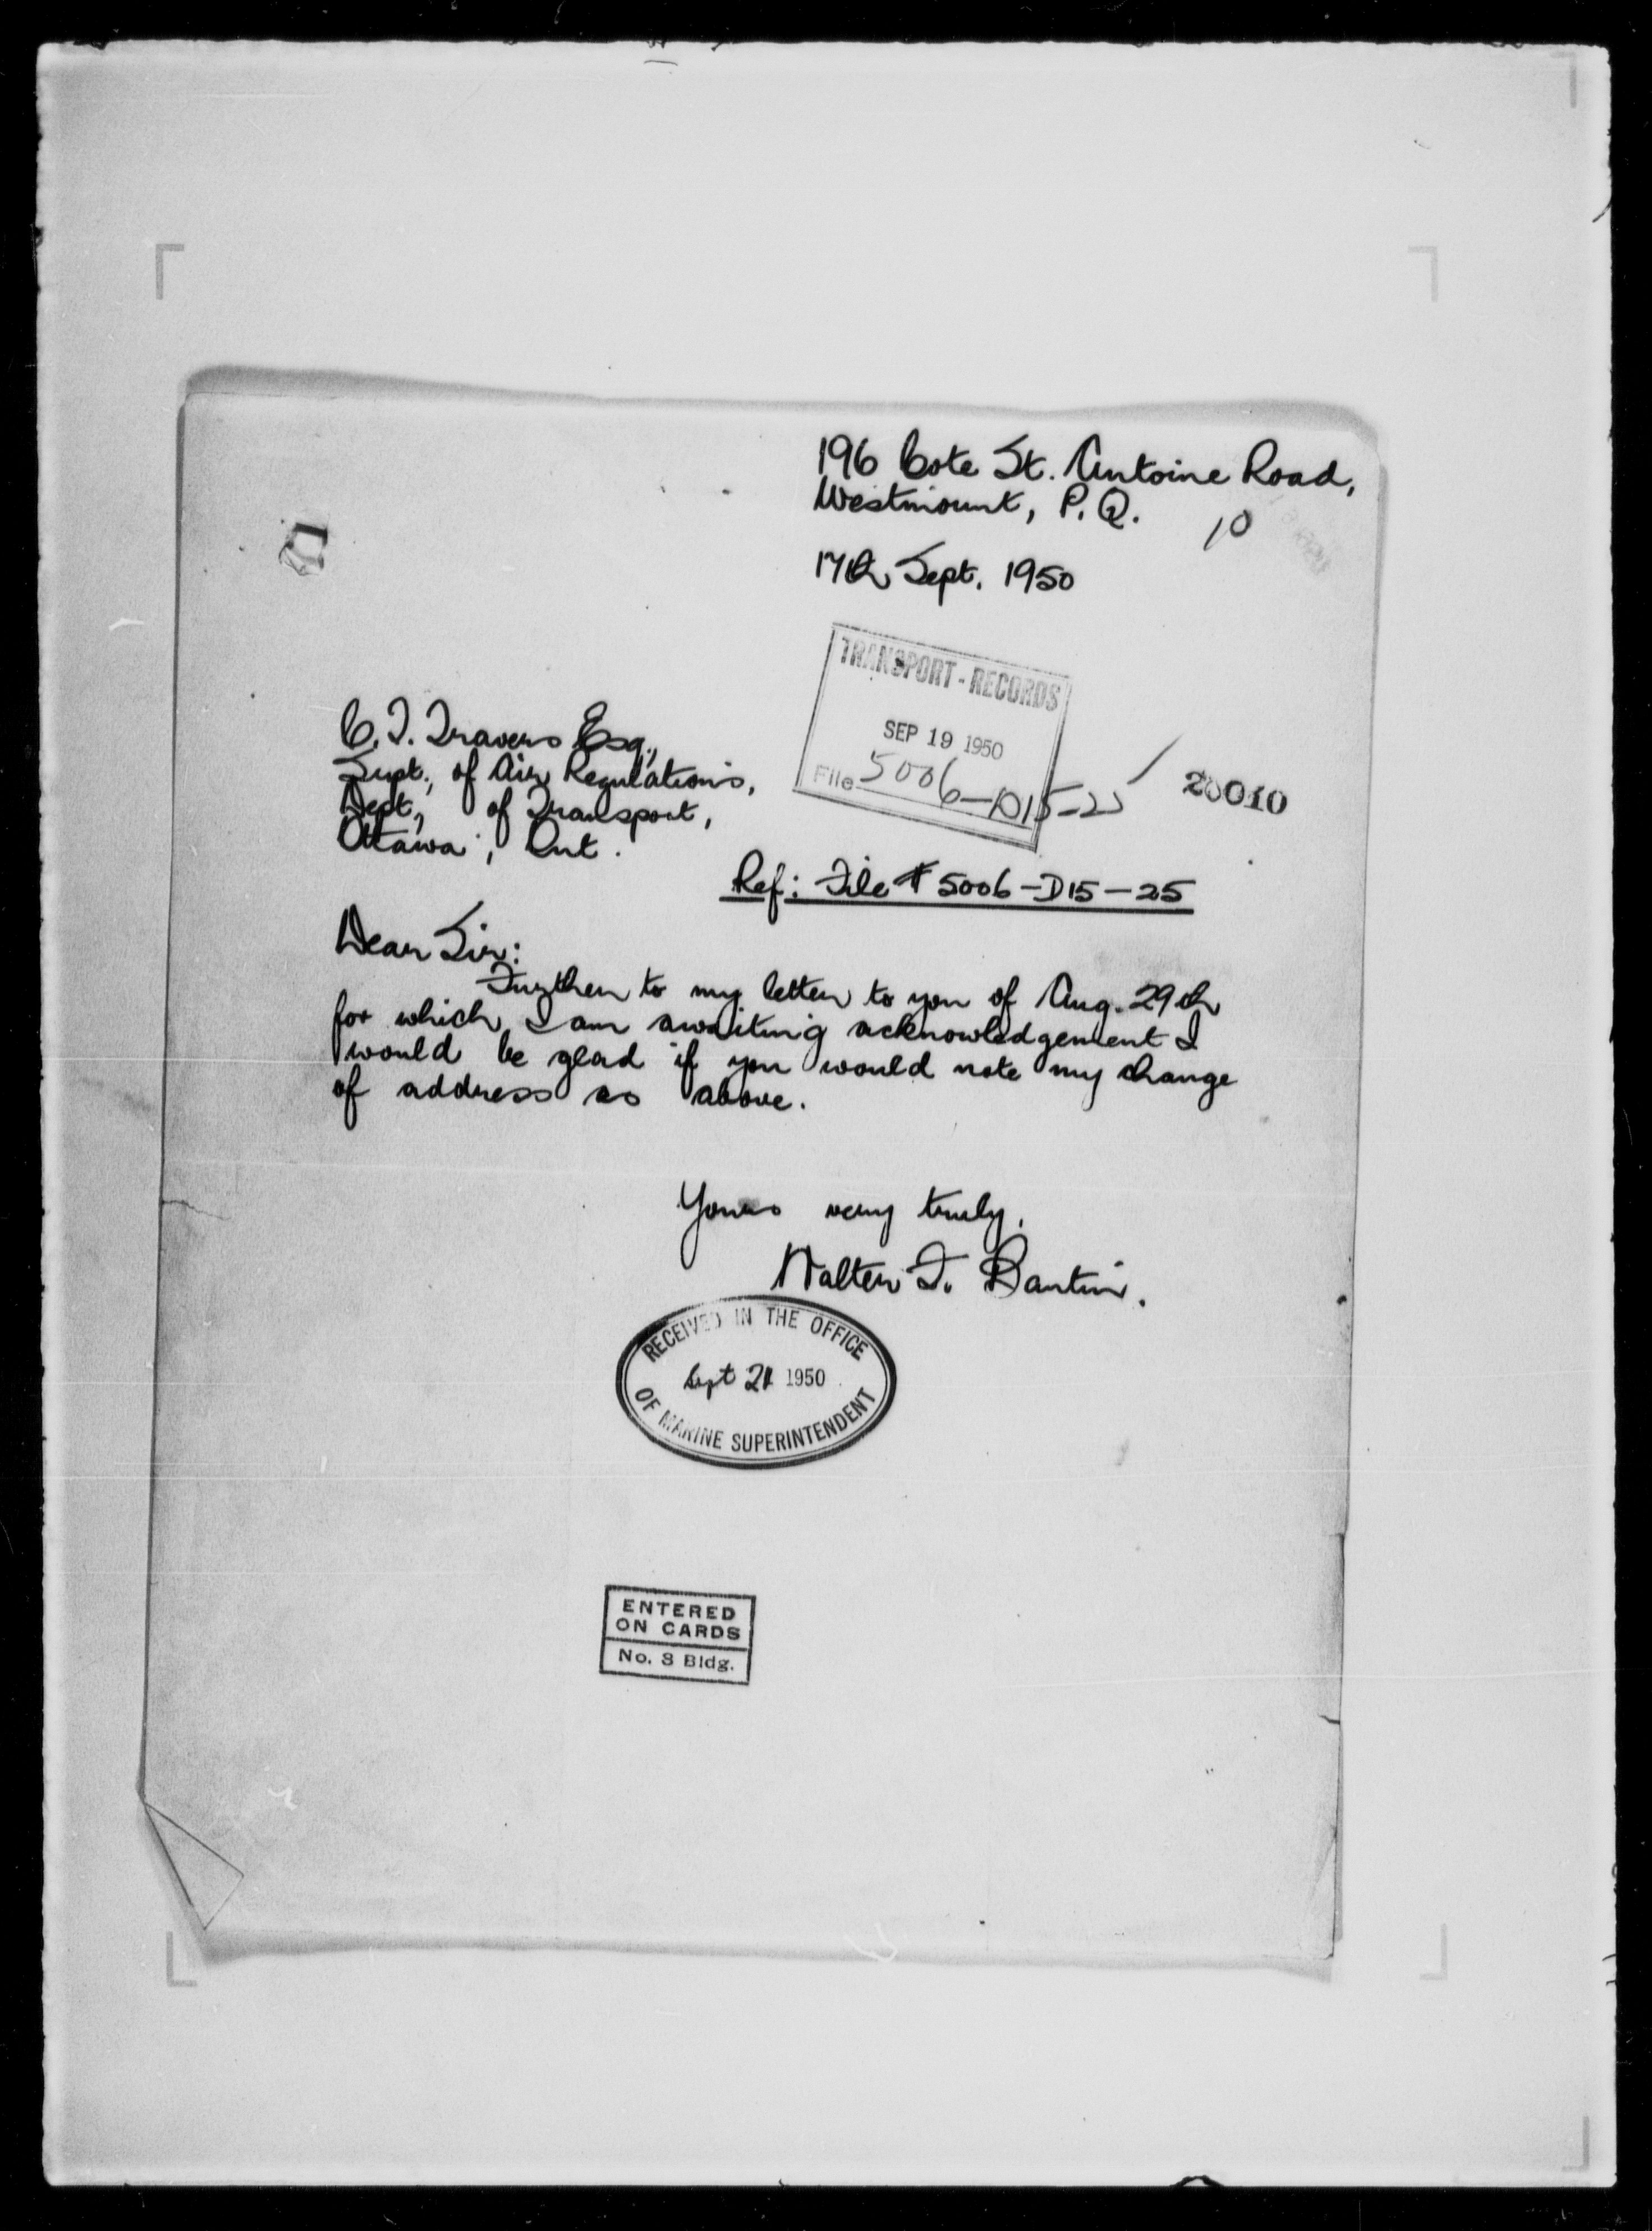 196 Cote St. Antoine Road,
Westmount, P.Q.
10
17th Sept. 1950
TRANSPORT - RECORDS
SEP 19 1950
File 5006-D15-25
20010
C.T. Travers Esq.,
Supt., of Air Regulations,
Dept., of Transport,
Ottawa, Ont.
Ref: File # 5006-D15-25
Dear Sir:
Further to my letter to you of Aug. 29th
for which I am awaiting acknowledgement I
would be glad if you would note my change
of address as above.
Yours very truly,
Walter T. Bantin.
RECEIVED IN THE OFFICE
Sept 21 1950
OF MARINE SUPERINTENDENT
ENTERED
ON CARDS
No. 3 Bldg.